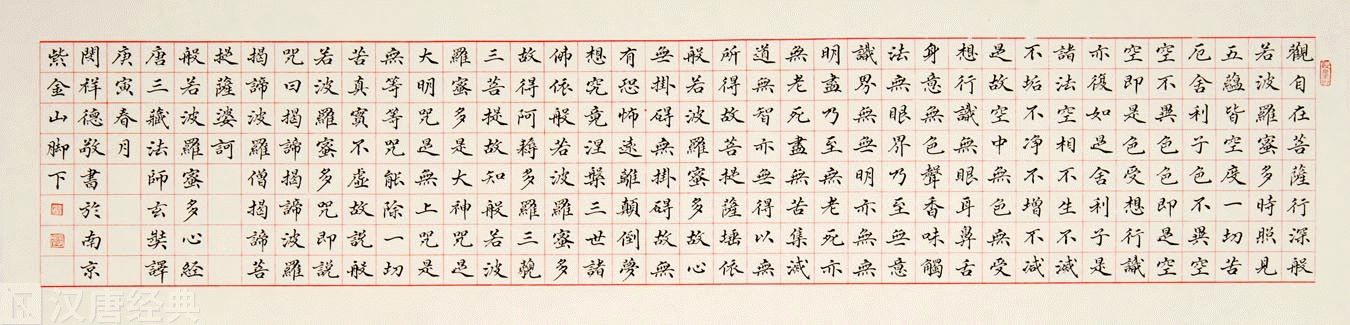 觀自在菩薩行深般
若波羅蜜多時照見
五蘊皆空度一切苦
厄舍利子色不異空
空不異色色即是空
空即是色受想行識
亦復如是舍利子是
諸法空相不生不滅
不垢不淨不增不減
是故空中無色無受
想行識無眼耳鼻舌
身意無色聲香味觸
法無眼界乃至無意
識界無無明亦無無
明盡乃至無老死亦
無老死盡無苦集滅
道無智亦無得以無
所得故菩提薩埵依
般若波羅蜜多故心
無掛礙無掛礙故無
有恐怖遠離顛倒夢
想究竟涅槃三世諸
佛依般若波羅蜜多
故得阿耨多羅三藐
三菩提故知般若波
羅蜜多是大神咒是
大明咒是無上咒是
無等等咒能除一切
苦真實不虛故說般
若波羅蜜多咒即說
咒曰揭諦揭諦波羅
揭諦波羅僧揭諦菩
提薩婆訶
般若波羅蜜多心經
唐三藏法師玄奘譯
庚寅春月
閔祥德敬書於南京
紫金山脚下
汉唐经典